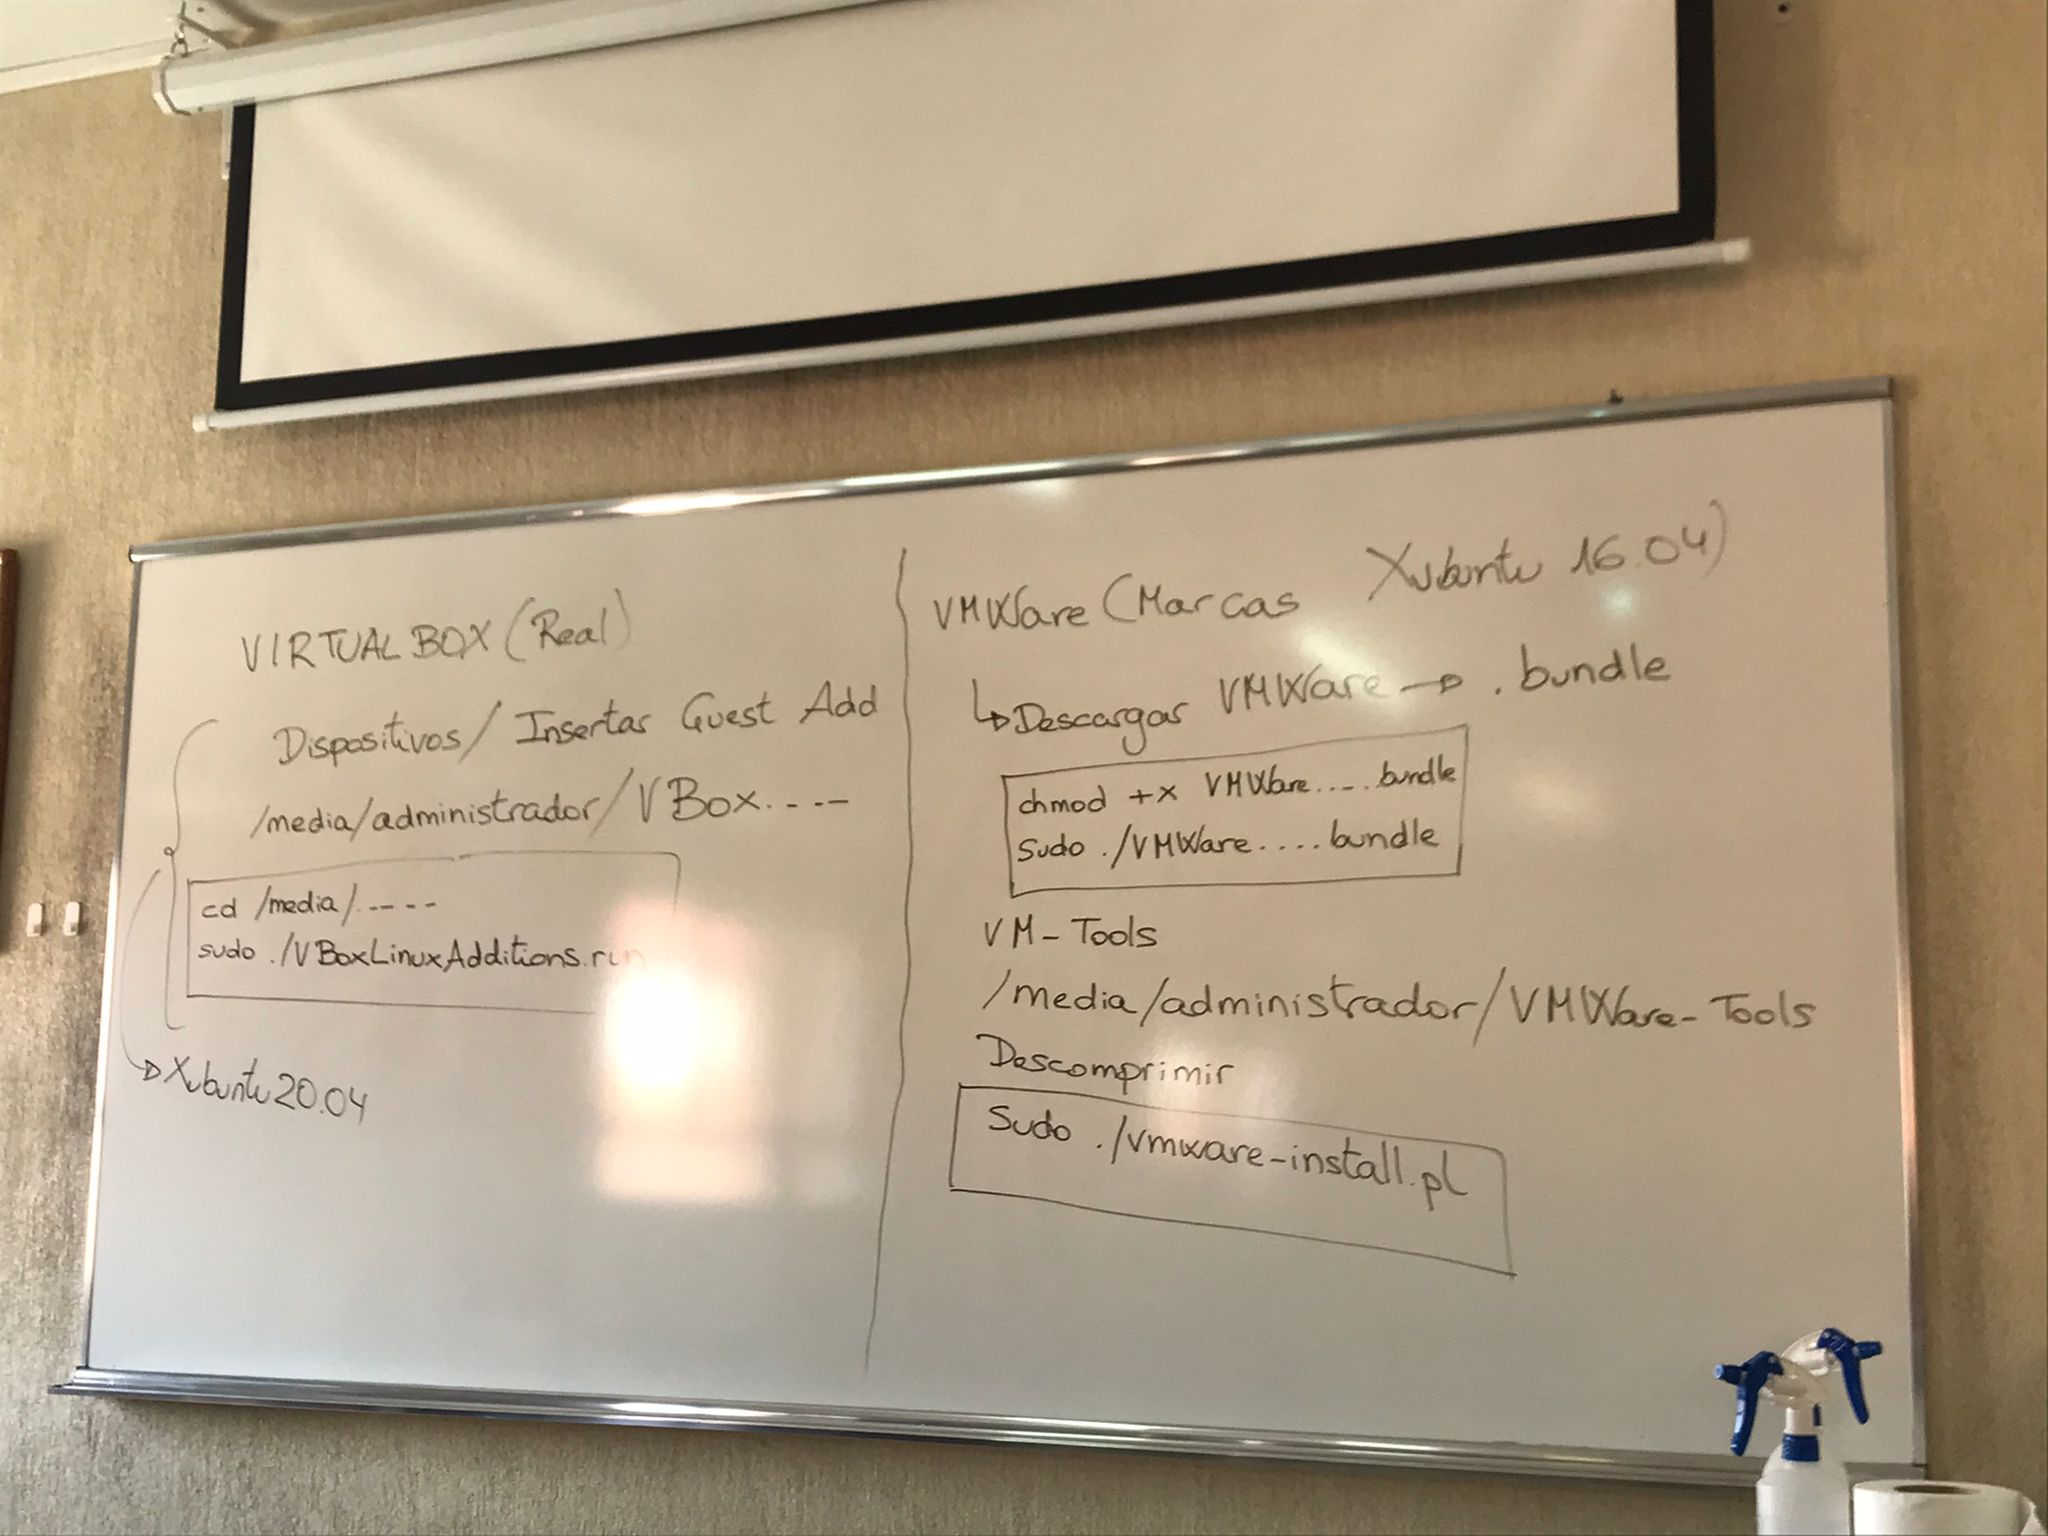 VIRTUAL BOX (Real)
Dispositivos/ Insertar Guest Add
/media/administrador/VBox....
cd /media/.....
sudo ./VBoxLinuxAdditions.run
Xubuntu 20.04
VMWare (Marcas Xubuntu 16.04)
Descargar VMWare → .bundle
chmod +x VMWare.....bundle
sudo ./VMWare....bundle
VM-Tools
/media/administrador/VMWare-Tools
Descomprimir
Sudo ./vmware-install.pl